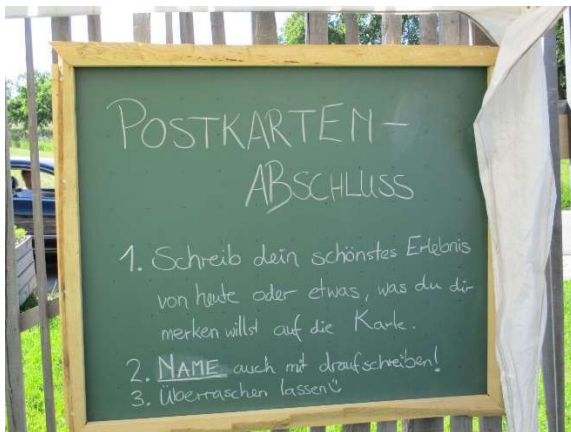 POSTKARTEN-
ABSCHLUSS
1. Schreib dein schönstes Erlebnis
von heute oder etwas, was du dir
merken willst auf die Karte.
2. NAME auch mit draufschreiben!
3. Überraschen lassen☺